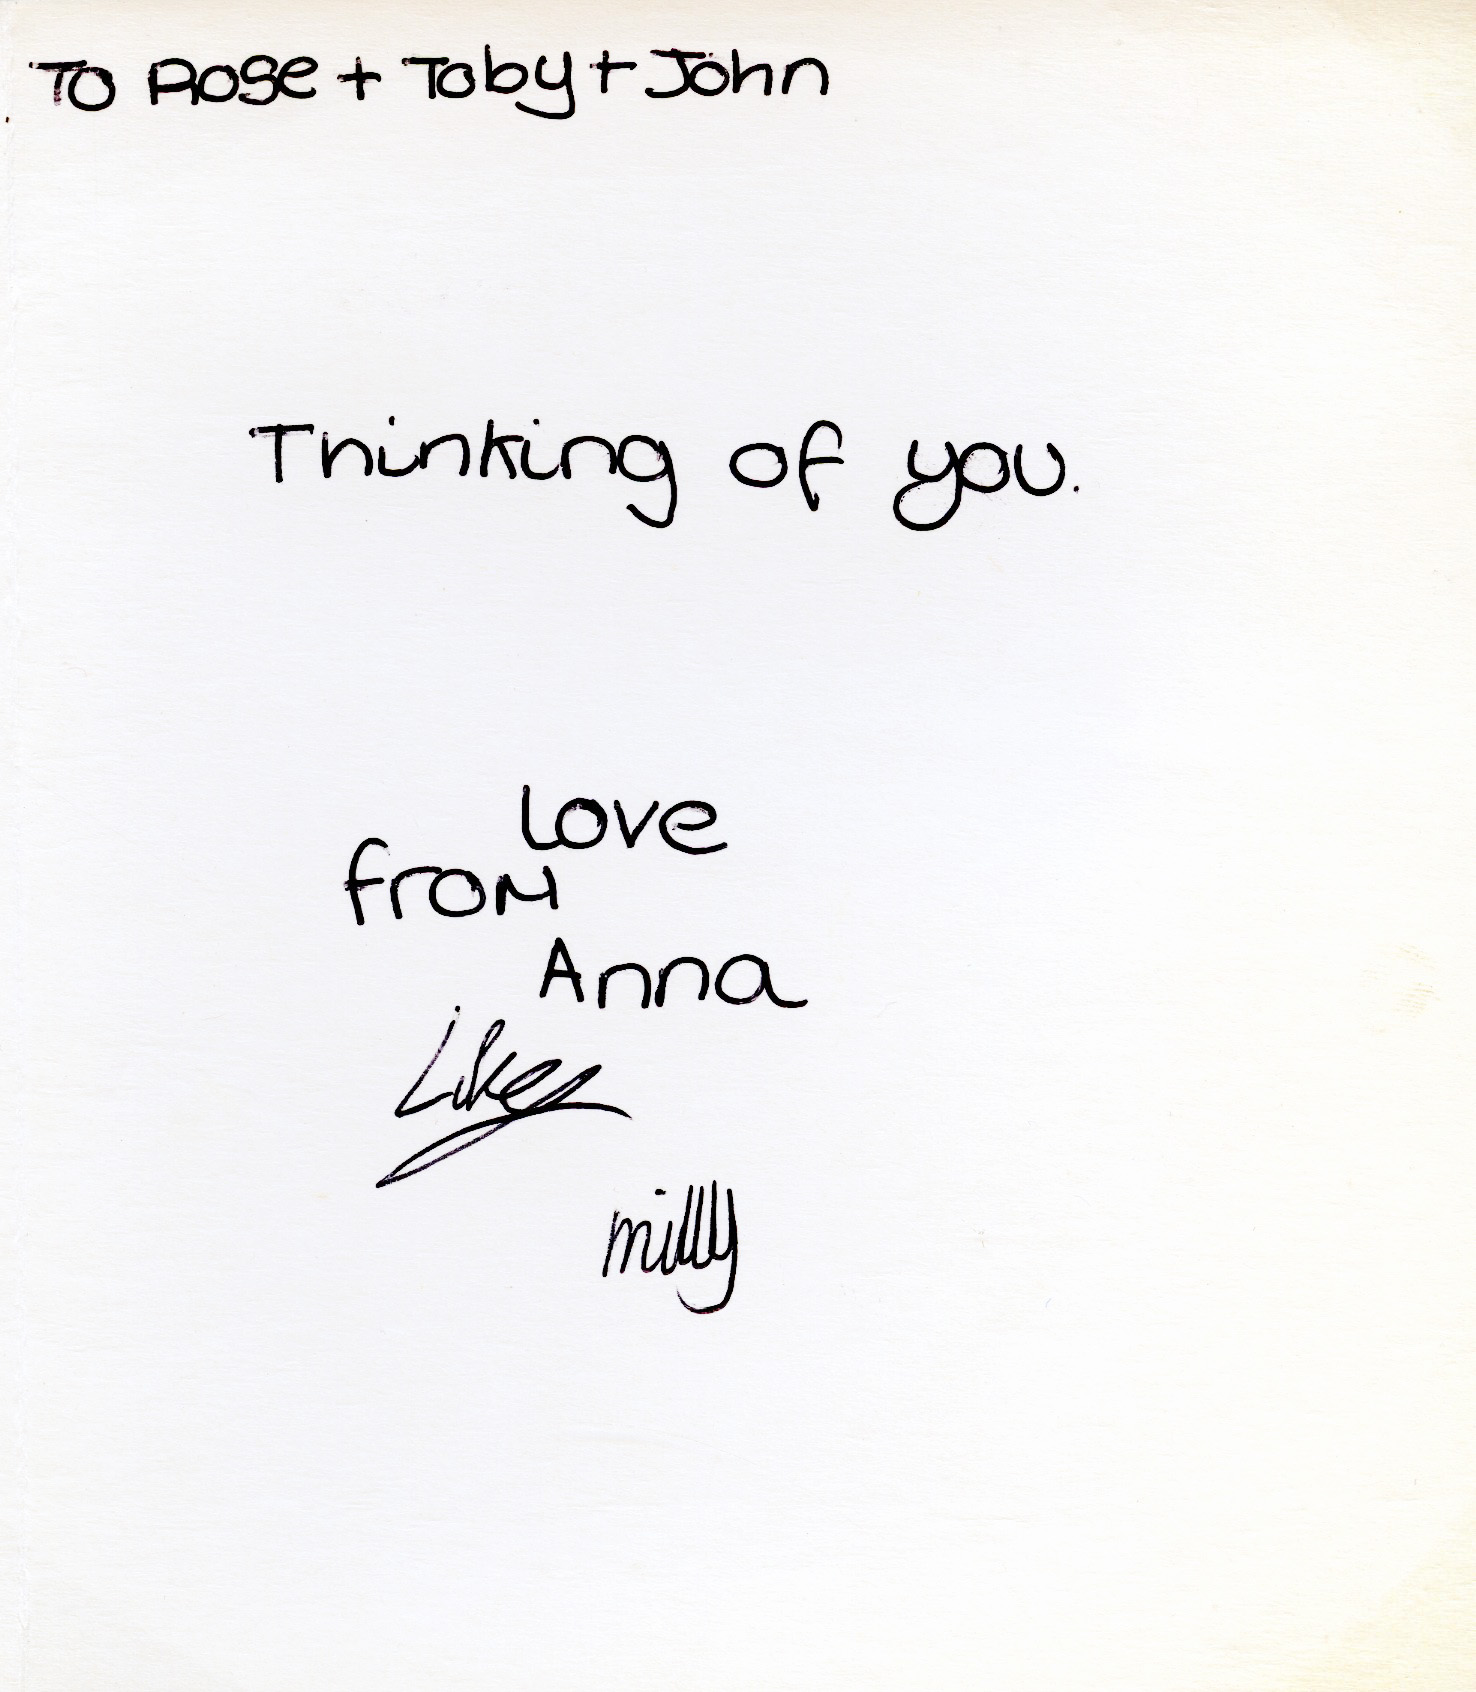 To Rose + Toby + John
Thinking of you.
Love
from
Anna
milly